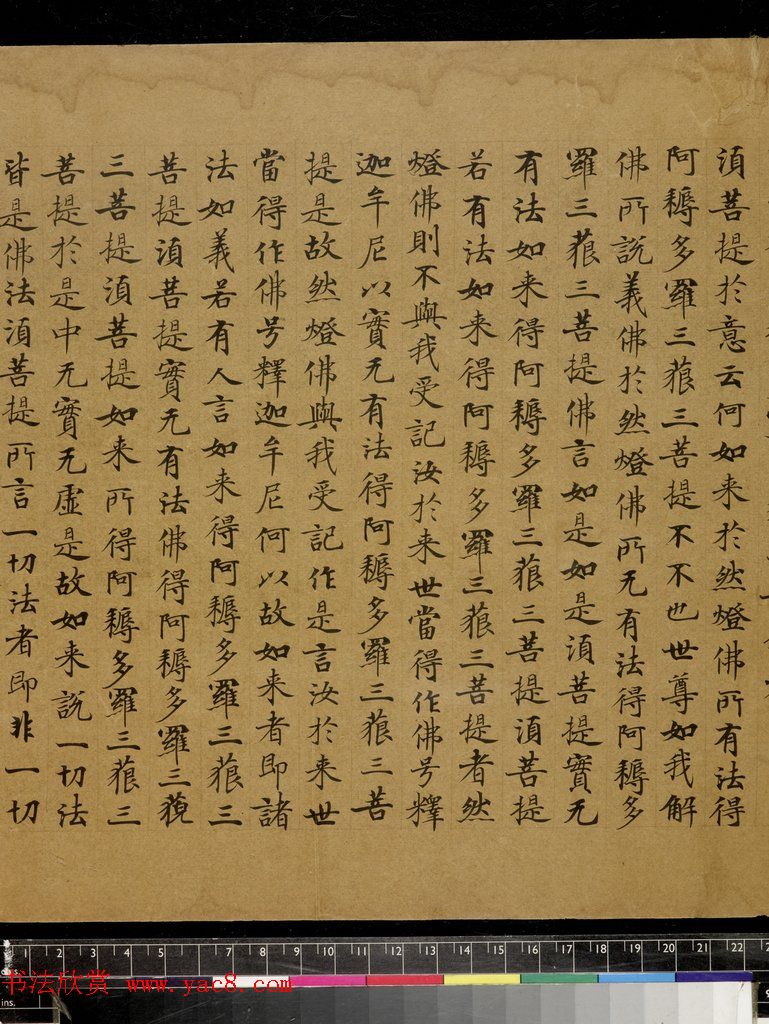 須菩提於意云何如来於然燈佛所有法得
阿耨多羅三藐三菩提不不也世尊如我解
佛所說義佛於然燈佛所无有法得阿耨多
羅三藐三菩提佛言如是如是須菩提實无
有法如来得阿耨多羅三藐三菩提須菩提
若有法如来得阿耨多羅三藐三菩提者然
燈佛則不與我受記汝於来世當得作佛号釋
迦牟尼以實无有法得阿耨多羅三藐三菩
提是故然燈佛與我受記作是言汝於来世
當得作佛号釋迦牟尼何以故如来者即諸
法如義若有人言如来得阿耨多羅三藐三
菩提須菩提實无有法佛得阿耨多羅三藐
三菩提須菩提如来所得阿耨多羅三藐三
菩提於是中无實无虛是故如来說一切法
皆是佛法須菩提所言一切法者即非一切
1 2 3 4 5 7 8 9 10 11 12 13 14 15 16 17 18 19 20 21 22
书法欣赏 www.yac8.com
ins.